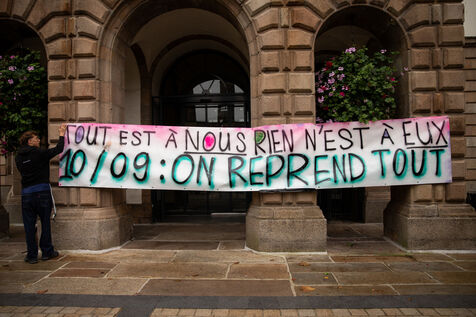 TOUT EST À NOUS RIEN N'EST À EUX
10/09 : ON REPREND TOUT